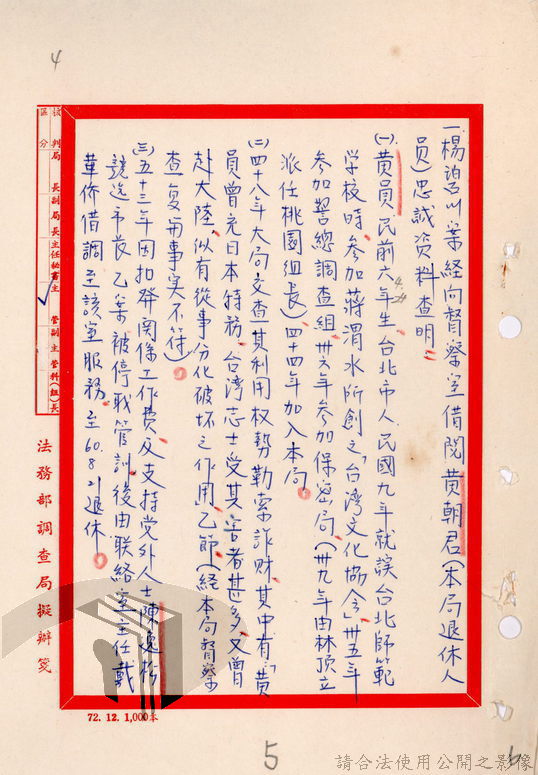 4
一、楊逸舟案経向督察室借閱黄朝君(本局退休人
員)忠誠资料查明
(一)黄員民前六年生台北市人民國九年就讀台北師範
学校時參加蔣渭水所創之「台湾文化協会」卅五年
參加警總調查組卅六年參加保密局(卅九年由林頂立
派任桃園組長)四十四年加入本局
(二)四十八年大局交查其利用权势勒索詐財其中有「黄
員曾充日本特務台湾志士受其害者甚多又曾
赴大陸似有從事分化破坏之作用」乙節(経本局督察
查复与事実不符)
(三)五十三年因扣發関係工作費及支持党外人士陳逸松
競选市長乙案被停职管訓後由联絡室主任戴
華侨借調至該室服務至60.8.21退休
核判
區分
局長
副局長
主任秘書
主管
副主管
科(組)長
法務部調查局擬辦箋
72.12.1,000本
5
請合法使用公開之影像